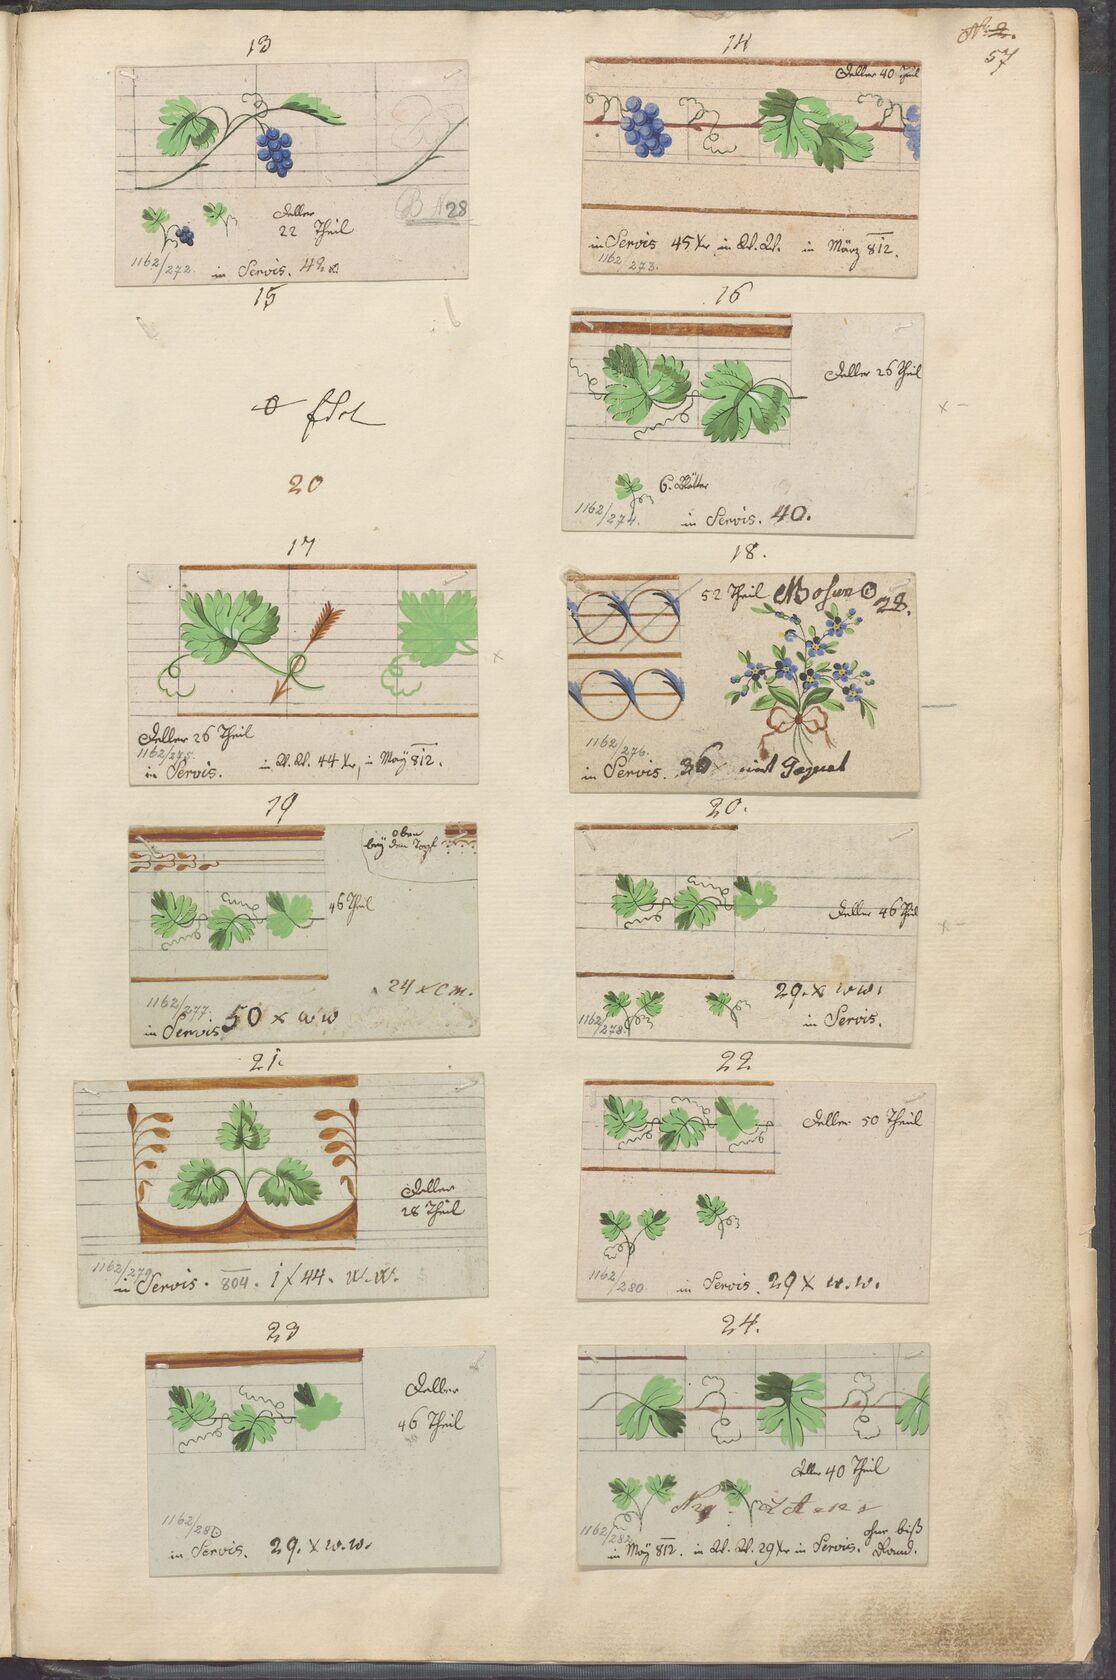 N: 2.
57
13
B N 28
Deller
22 Theil
1162/272.
in Servis.
14
Deller 40 Theil
in Servis 45 Xr in W. W. in März 812.
1162/273.
15
20
16
Deller 26 Theil
6. Blätter
1162/274.
in Servis. 40.
17
Deller 26 Theil
1162/275.
in Servis. in W. W. 44 Xr, in Maÿ 812.
18.
52 Theil
28.
1162/276.
in Servis. 36
19
oben
beÿ dem Topf
46 Theil
24 x C M.
1162/277.
in Servis 50 x W W
20.
Deller 46 Theil
29. x w w.
1162/278.
in Servis.
21.
Deller
28 Theil
1162/279.
in Servis. 804. 1 f 44. W. W.
22
Deller 50 Theil
1162/280
in Servis. 29 X w. w.
23
Deller
46 Theil
1162/281
in Servis. 29. X w. w.
24.
Deller 40 Theil
1162/282.
in Maÿ 812. in W. W. 29 Xr in Servis.